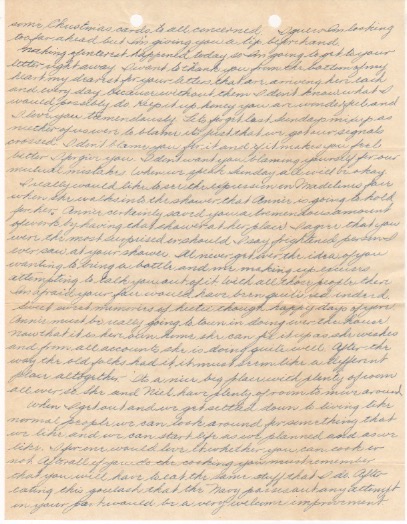 some Christmas cards to all concerned. I guess I'm looking
too far ahead but I'm giving you a tip beforehand
Nothing of interest happened today so I'm going to get to your
letter right away. I want to thank you from the bottom of my
heart my dearest for your letters that are arriving here each
and every day because without them I don't know what I
would possibly do. Keep it up honey you are wonderful and
I love you tremendously. Let's forget last Sunday's mixup as
neither of us were to blame it's just that we got our signals
crossed. I don't blame you for it and if it makes you feel
better I forgive you. I don't want you blaming yourself for our
mutual mistake. When we speak Sunday all will be okay.
I really would like to see the expression on Madeline's face
when she walks into the shower that Annie is going to hold
for her. Annie certainly saved you a tremendous amount
of work by having that shower at her place. I agree that you
were the most surprised or should I say frightened person I
ever saw at your shower. I'll never get over the idea of you
wanting to bring a bottle and me making up excuses
attempting to talk you out of it with all those people there
I'm afraid your face would have been quite red indeed.
Sweet sweet memories of hectic though happy days of yore
Annie must be really going to town in doing over the house
Now that it is her own home she can fix it up as she wishes
and from all accounts she is doing quite well. After the
way the old folks had it it must seem like a different
place altogether. It's a nice big place with plenty of room
all over so she and Niel have plenty of room to move around.
When I get out and we get settled down to living like
normal people we can look around for something that
we like and we can start life as we planned and as we
like. I for one would love whether you can cook or
not. After all if you do the cooking you must remember
that you will have to eat the same stuff that I do. After
eating this goulash that the Navy passes out any attempt
on your part would be a very welcome improvement